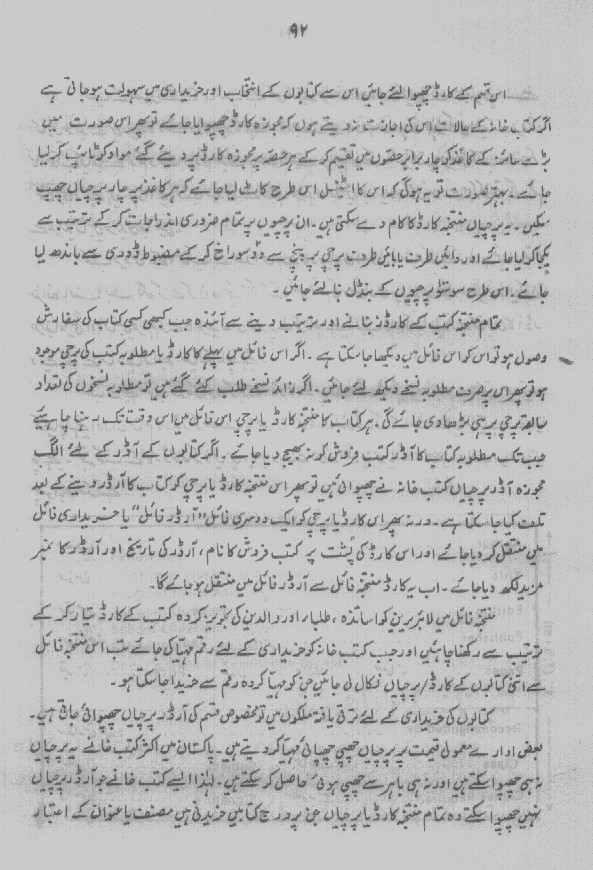 ۹۲
اس قسم کے کارڈ چھپوا لئے جائیں اس سے کتابوں کے انتخاب اور خریداری میں سہولت ہو جاتی ہے
اگر کتب خانہ کے حالات اس کی اجازت نہ دیتے ہوں کہ مجوزہ کارڈ چھپوایا جائے تو پھر اس صورت میں
بڑے سائز کے کاغذ کو چار برابر حصوں میں تقسیم کر کے ہر حصّہ پر مجوزہ کارڈ پر دیئے گئے مواد کو ٹائپ کر لیا
جائے۔ بہتر صورت تو یہ ہوگی کہ اس کا اسٹینسل اس طرح کاٹ لیا جائے کہ ہر کاغذ پر چار پرچیاں چھپ
سکیں۔ یہ پرچیاں منتخبہ کارڈ کا کام دے سکتی ہیں۔ ان پرچیوں پر تمام ضروری اندراجات کر کے ترتیب سے
یکجا کر لیا جائے اور دائیں طرف یا بائیں طرف پرچی پر پنچ سے دو سوراخ کر کے مضبوط ڈوری سے باندھ لیا
جائے۔ اس طرح سو سو پرچیوں کے بنڈل بنا لئے جائیں۔
تمام منتخبہ کتب کے کارڈز بنانے اور ترتیب دینے سے آئندہ جب کبھی کسی کتاب کی سفارش
وصول ہو تو اس کو اس فائل میں دیکھا جا سکتا ہے۔ اگر اس فائل میں پہلے کا کارڈ یا مطلوبہ کتب کی پرچی موجود
ہو تو پھر اس پر صرف مطلوبہ نسخے دیکھ لئے جائیں۔ اگر زائد نسخے طلب کئے گئے ہیں تو مطلوبہ نسخوں کی تعداد
سابقہ پرچی پر ہی بڑھا دی جائے گی۔ ہر کتاب کا منتخبہ کارڈ یا پرچی اس فائل میں اس وقت تک رہنا چاہیئے
جب تک مطلوبہ کتاب کا آڈر کتب فروش کو نہ بھیج دیا جائے۔ اگر کتابوں کے آڈر کے لئے الگ
مجوزہ آڈر پرچیاں کتب خانہ نے چھپوائی ہیں تو پھر اس منتخبہ کارڈ یا پرچی کو کتاب کا آرڈر دینے کے بعد
تلف کیا جا سکتا ہے۔ ورنہ پھر اس کارڈ یا پرچی کو ایک دوسری فائل ”آرڈر فائل“ یا خریداری فائل
میں منتقل کر دیا جائے اور اس کارڈ کی پشت پر کتب فروش کا نام، آرڈر کی تاریخ اور آرڈر کا نمبر
مزید لکھ دیا جائے۔ اب یہ کارڈ منتخبہ فائل سے آرڈر فائل میں منتقل ہو جائے گا۔
منتخبہ فائل میں لائبریرین کو اساتذہ، طلباء اور والدین کی تجویز کردہ کتب کے کارڈ تیار کر کے
ترتیب سے رکھنا چاہئیں اور جب کتب خانہ کو خریداری کے لئے رقم مہیّا کی جائے تب اس منتخبہ فائل
سے اتنی کتابوں کے کارڈ/پرچیاں نکال لی جائیں جن کو مہیّا کردہ رقم سے خریدا جا سکتا ہو۔
کتابوں کی خریداری کے لئے ترقی یافتہ ملکوں میں تو مخصوص قسم کی آرڈر پرچیاں چھپوائی جاتی ہیں۔
بعض ادارے معمولی قیمت پر یہ پرچیاں چھپی چھپائی مہیّا کر دیتے ہیں۔ پاکستان میں اکثر کتب خانے یہ پرچیاں
نہ ہی چھپوا سکتے ہیں اور نہ ہی باہر سے چھپی ہوئی حاصل کر سکتے ہیں۔ لہٰذا ایسے کتب خانے جو آرڈر پرچیاں
نہیں چھپوا سکتے وہ تمام منتخبہ کارڈ یا پرچیاں جن پر درج کتابیں خریدنی ہیں مصنف یا عنوان کے اعتبار